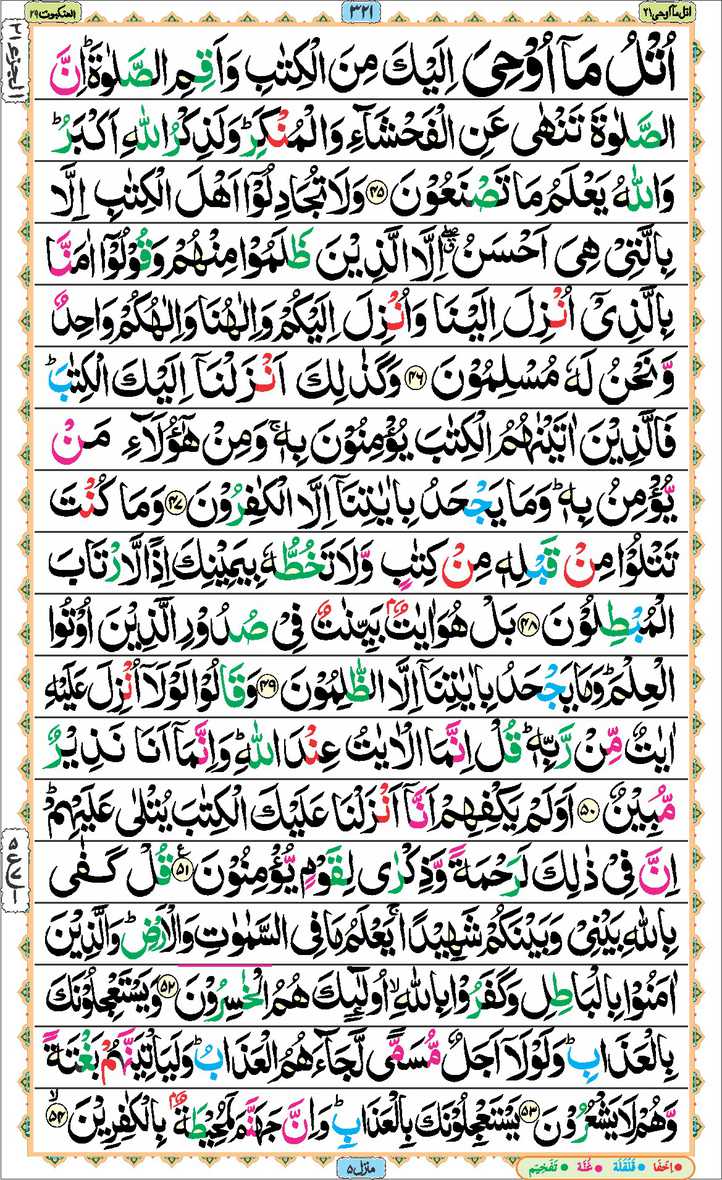 اتل مآ اوحی ۲۱
۳۲۱
العنكبوت ۲۹
اُتْلُ مَاۤ اُوْحِیَ اِلَیْكَ مِنَ الْكِتٰبِ وَاَقِمِ الصَّلٰوةَ ؕ اِنَّ
الصَّلٰوةَ تَنْهٰی عَنِ الْفَحْشَآءِ وَالْمُنْكَرِ ؕ وَلَذِكْرُ اللّٰهِ اَكْبَرُ ؕ
وَاللّٰهُ یَعْلَمُ مَا تَصْنَعُوْنَ ﴿۴۵﴾ وَلَا تُجَادِلُوْۤا اَهْلَ الْكِتٰبِ اِلَّا
بِالَّتِیْ هِیَ اَحْسَنُ ۖ اِلَّا الَّذِیْنَ ظَلَمُوْا مِنْهُمْ وَقُوْلُوْۤا اٰمَنَّا
بِالَّذِیْۤ اُنْزِلَ اِلَیْنَا وَاُنْزِلَ اِلَیْكُمْ وَاِلٰهُنَا وَاِلٰهُكُمْ وَاحِدٌ
وَّنَحْنُ لَهٗ مُسْلِمُوْنَ ﴿۴۶﴾ وَكَذٰلِكَ اَنْزَلْنَاۤ اِلَیْكَ الْكِتٰبَ ؕ
فَالَّذِیْنَ اٰتَیْنٰهُمُ الْكِتٰبَ یُؤْمِنُوْنَ بِهٖ ۚ وَمِنْ هٰۤؤُلَآءِ مَنْ
یُّؤْمِنُ بِهٖ ؕ وَمَا یَجْحَدُ بِاٰیٰتِنَاۤ اِلَّا الْكٰفِرُوْنَ ﴿۴۷﴾ وَمَا كُنْتَ
تَتْلُوْا مِنْ قَبْلِهٖ مِنْ كِتٰبٍ وَّلَا تَخُطُّهٗ بِیَمِیْنِكَ اِذًا لَّارْتَابَ
الْمُبْطِلُوْنَ ﴿۴۸﴾ بَلْ هُوَ اٰیٰتٌۢ بَیِّنٰتٌ فِیْ صُدُوْرِ الَّذِیْنَ اُوْتُوا
الْعِلْمَ ؕ وَمَا یَجْحَدُ بِاٰیٰتِنَاۤ اِلَّا الظّٰلِمُوْنَ ﴿۴۹﴾ وَقَالُوْا لَوْلَاۤ اُنْزِلَ عَلَیْهِ
اٰیٰتٌ مِّنْ رَّبِّهٖ ؕ قُلْ اِنَّمَا الْاٰیٰتُ عِنْدَ اللّٰهِ ؕ وَاِنَّمَاۤ اَنَا نَذِیْرٌ
مُّبِیْنٌ ﴿۵۰﴾ اَوَلَمْ یَكْفِهِمْ اَنَّاۤ اَنْزَلْنَا عَلَیْكَ الْكِتٰبَ یُتْلٰی عَلَیْهِمْ ؕ
اِنَّ فِیْ ذٰلِكَ لَرَحْمَةً وَّذِكْرٰی لِقَوْمٍ یُّؤْمِنُوْنَ ﴿۵۱﴾ ع قُلْ كَفٰی
بِاللّٰهِ بَیْنِیْ وَبَیْنَكُمْ شَهِیْدًا ۚ یَعْلَمُ مَا فِی السَّمٰوٰتِ وَالْاَرْضِ ؕ وَالَّذِیْنَ
اٰمَنُوْا بِالْبَاطِلِ وَكَفَرُوْا بِاللّٰهِ ۙ اُولٰٓئِكَ هُمُ الْخٰسِرُوْنَ ﴿۵۲﴾ وَیَسْتَعْجِلُوْنَكَ
بِالْعَذَابِ ؕ وَلَوْلَاۤ اَجَلٌ مُّسَمًّی لَّجَآءَهُمُ الْعَذَابُ ؕ وَلَیَاْتِیَنَّهُمْ بَغْتَةً
وَّهُمْ لَا یَشْعُرُوْنَ ﴿۵۳﴾ یَسْتَعْجِلُوْنَكَ بِالْعَذَابِ ؕ وَاِنَّ جَهَنَّمَ لَمُحِیْطَةٌۢ بِالْكٰفِرِیْنَ ﴿۵۴﴾ ۙ
منزل ۵
اِخفَا قَلْقَلَة غُنَّة تَفْخِیْم